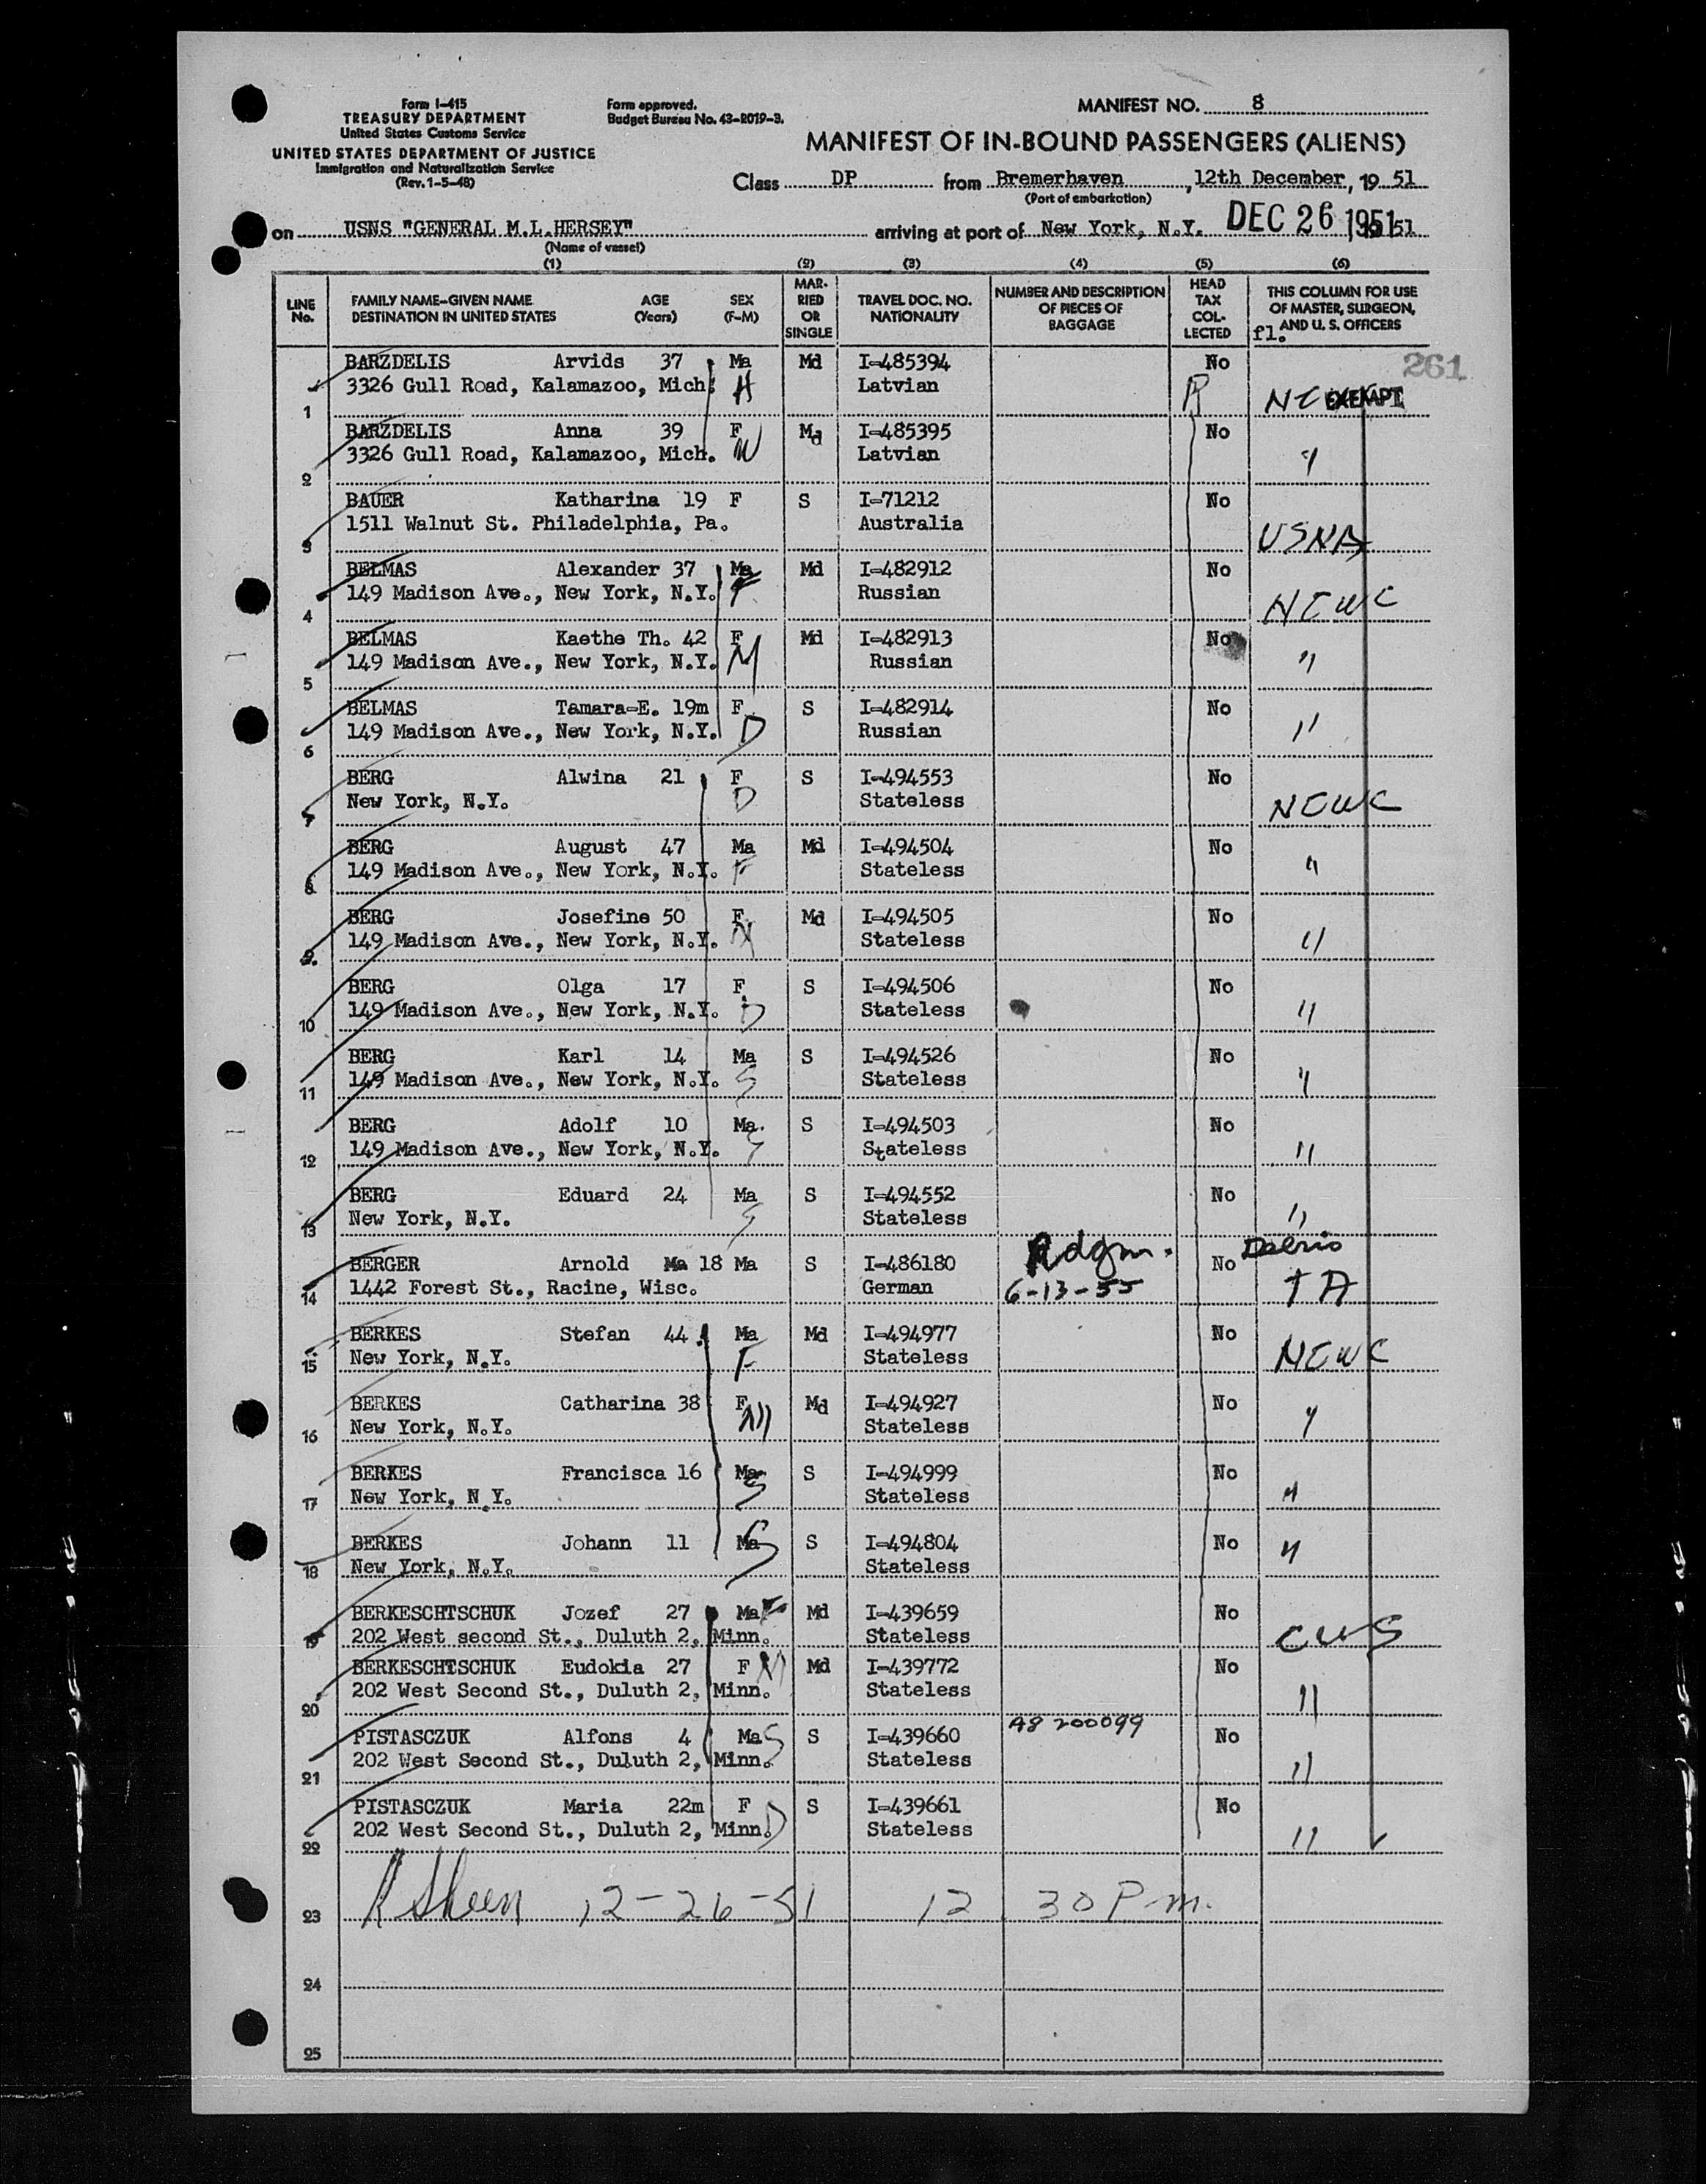 Form I-415
TREASURY DEPARTMENT
United States Customs Service
UNITED STATES DEPARTMENT OF JUSTICE
Immigration and Naturalization Service
(Rev. 1-5-48)
Form approved.
Budget Bureau No. 43-R019-3.
MANIFEST NO. 8
MANIFEST OF IN-BOUND PASSENGERS (ALIENS)
Class DP from Bremerhaven, 12th December, 19 51
(Port of embarkation)
on USNS "GENERAL M.L.HERSEY" arriving at port of New York, N.Y. DEC 26 1951 51
(Name of vessel)
(1) (2) (3) (4) (5) (6)
LINE No. FAMILY NAME-GIVEN NAME DESTINATION IN UNITED STATES AGE (Years) SEX (F-M) MARRIED OR SINGLE TRAVEL DOC. NO. NATIONALITY NUMBER AND DESCRIPTION OF PIECES OF BAGGAGE HEAD TAX COLLECTED THIS COLUMN FOR USE OF MASTER, SURGEON, AND U. S. OFFICERS
fl.
261
BARZDELIS Arvids 37 Ma Md I-485394 No
1 3326 Gull Road, Kalamazoo, Mich. H Latvian NC EXEMPT
BARZDELIS Anna 39 F Md I-485395 No
2 3326 Gull Road, Kalamazoo, Mich. W Latvian "
BAUER Katharina 19 F S I-71212 No
3 1511 Walnut St. Philadelphia, Pa. Australia USNA
BELMAS Alexander 37 Ma Md I-482912 No
4 149 Madison Ave., New York, N.Y. F Russian NCWC
BELMAS Kaethe Th. 42 F Md I-482913 No
5 149 Madison Ave., New York, N.Y. M Russian "
BELMAS Tamara-E. 19m F S I-482914 No
6 149 Madison Ave., New York, N.Y. D Russian "
BERG Alwina 21 F S I-494553 No
7 New York, N.Y. D Stateless NCWC
BERG August 47 Ma Md I-494504 No
8 149 Madison Ave., New York, N.Y. F Stateless "
BERG Josefine 50 F Md I-494505 No
9 149 Madison Ave., New York, N.Y. M Stateless "
BERG Olga 17 F S I-494506 No
10 149 Madison Ave., New York, N.Y. D Stateless "
BERG Karl 14 Ma S I-494526 No
11 149 Madison Ave., New York, N.Y. S Stateless "
BERG Adolf 10 Ma. S I-494503 No
12 149 Madison Ave., New York, N.Y. S Stateless "
BERG Eduard 24 Ma S I-494552 No
13 New York, N.Y. S Stateless "
BERGER Arnold Ma 18 Ma S I-486180 Rdgm. No
14 1442 Forest St., Racine, Wisc. German 6-13-55
BERKES Stefan 44 Ma Md I-494977 No
15 New York, N.Y. F Stateless NCWC
BERKES Catharina 38 F Md I-494927 No
16 New York, N.Y. M Stateless "
BERKES Francisca 16 Ma S I-494999 No
17 New York, N.Y. S Stateless "
BERKES Johann 11 Ma S I-494804 No
18 New York, N.Y. S Stateless "
BERKESCHTSCHUK Jozef 27 Ma F Md I-439659 No
19 202 West second St., Duluth 2, Minn. Stateless CWS
BERKESCHTSCHUK Eudokia 27 F M Md I-439772 No
20 202 West Second St., Duluth 2, Minn. Stateless "
PISTASCZUK Alfons 4 Ma S S I-439660 A8 200099 No
21 202 West Second St., Duluth 2, Minn. Stateless "
PISTASCZUK Maria 22m F S I-439661 No
22 202 West Second St., Duluth 2, Minn. D Stateless "
23 12-26-51 12 30 P.m.
24
25